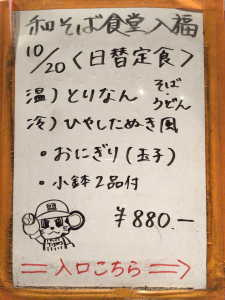 和そば食堂入福
10/20〈日替定食〉
温)とりなん そば
冷)ひやしたぬき風 うどん
・おにぎり(玉子)
・小鉢2品付
¥880.―
入口こちら